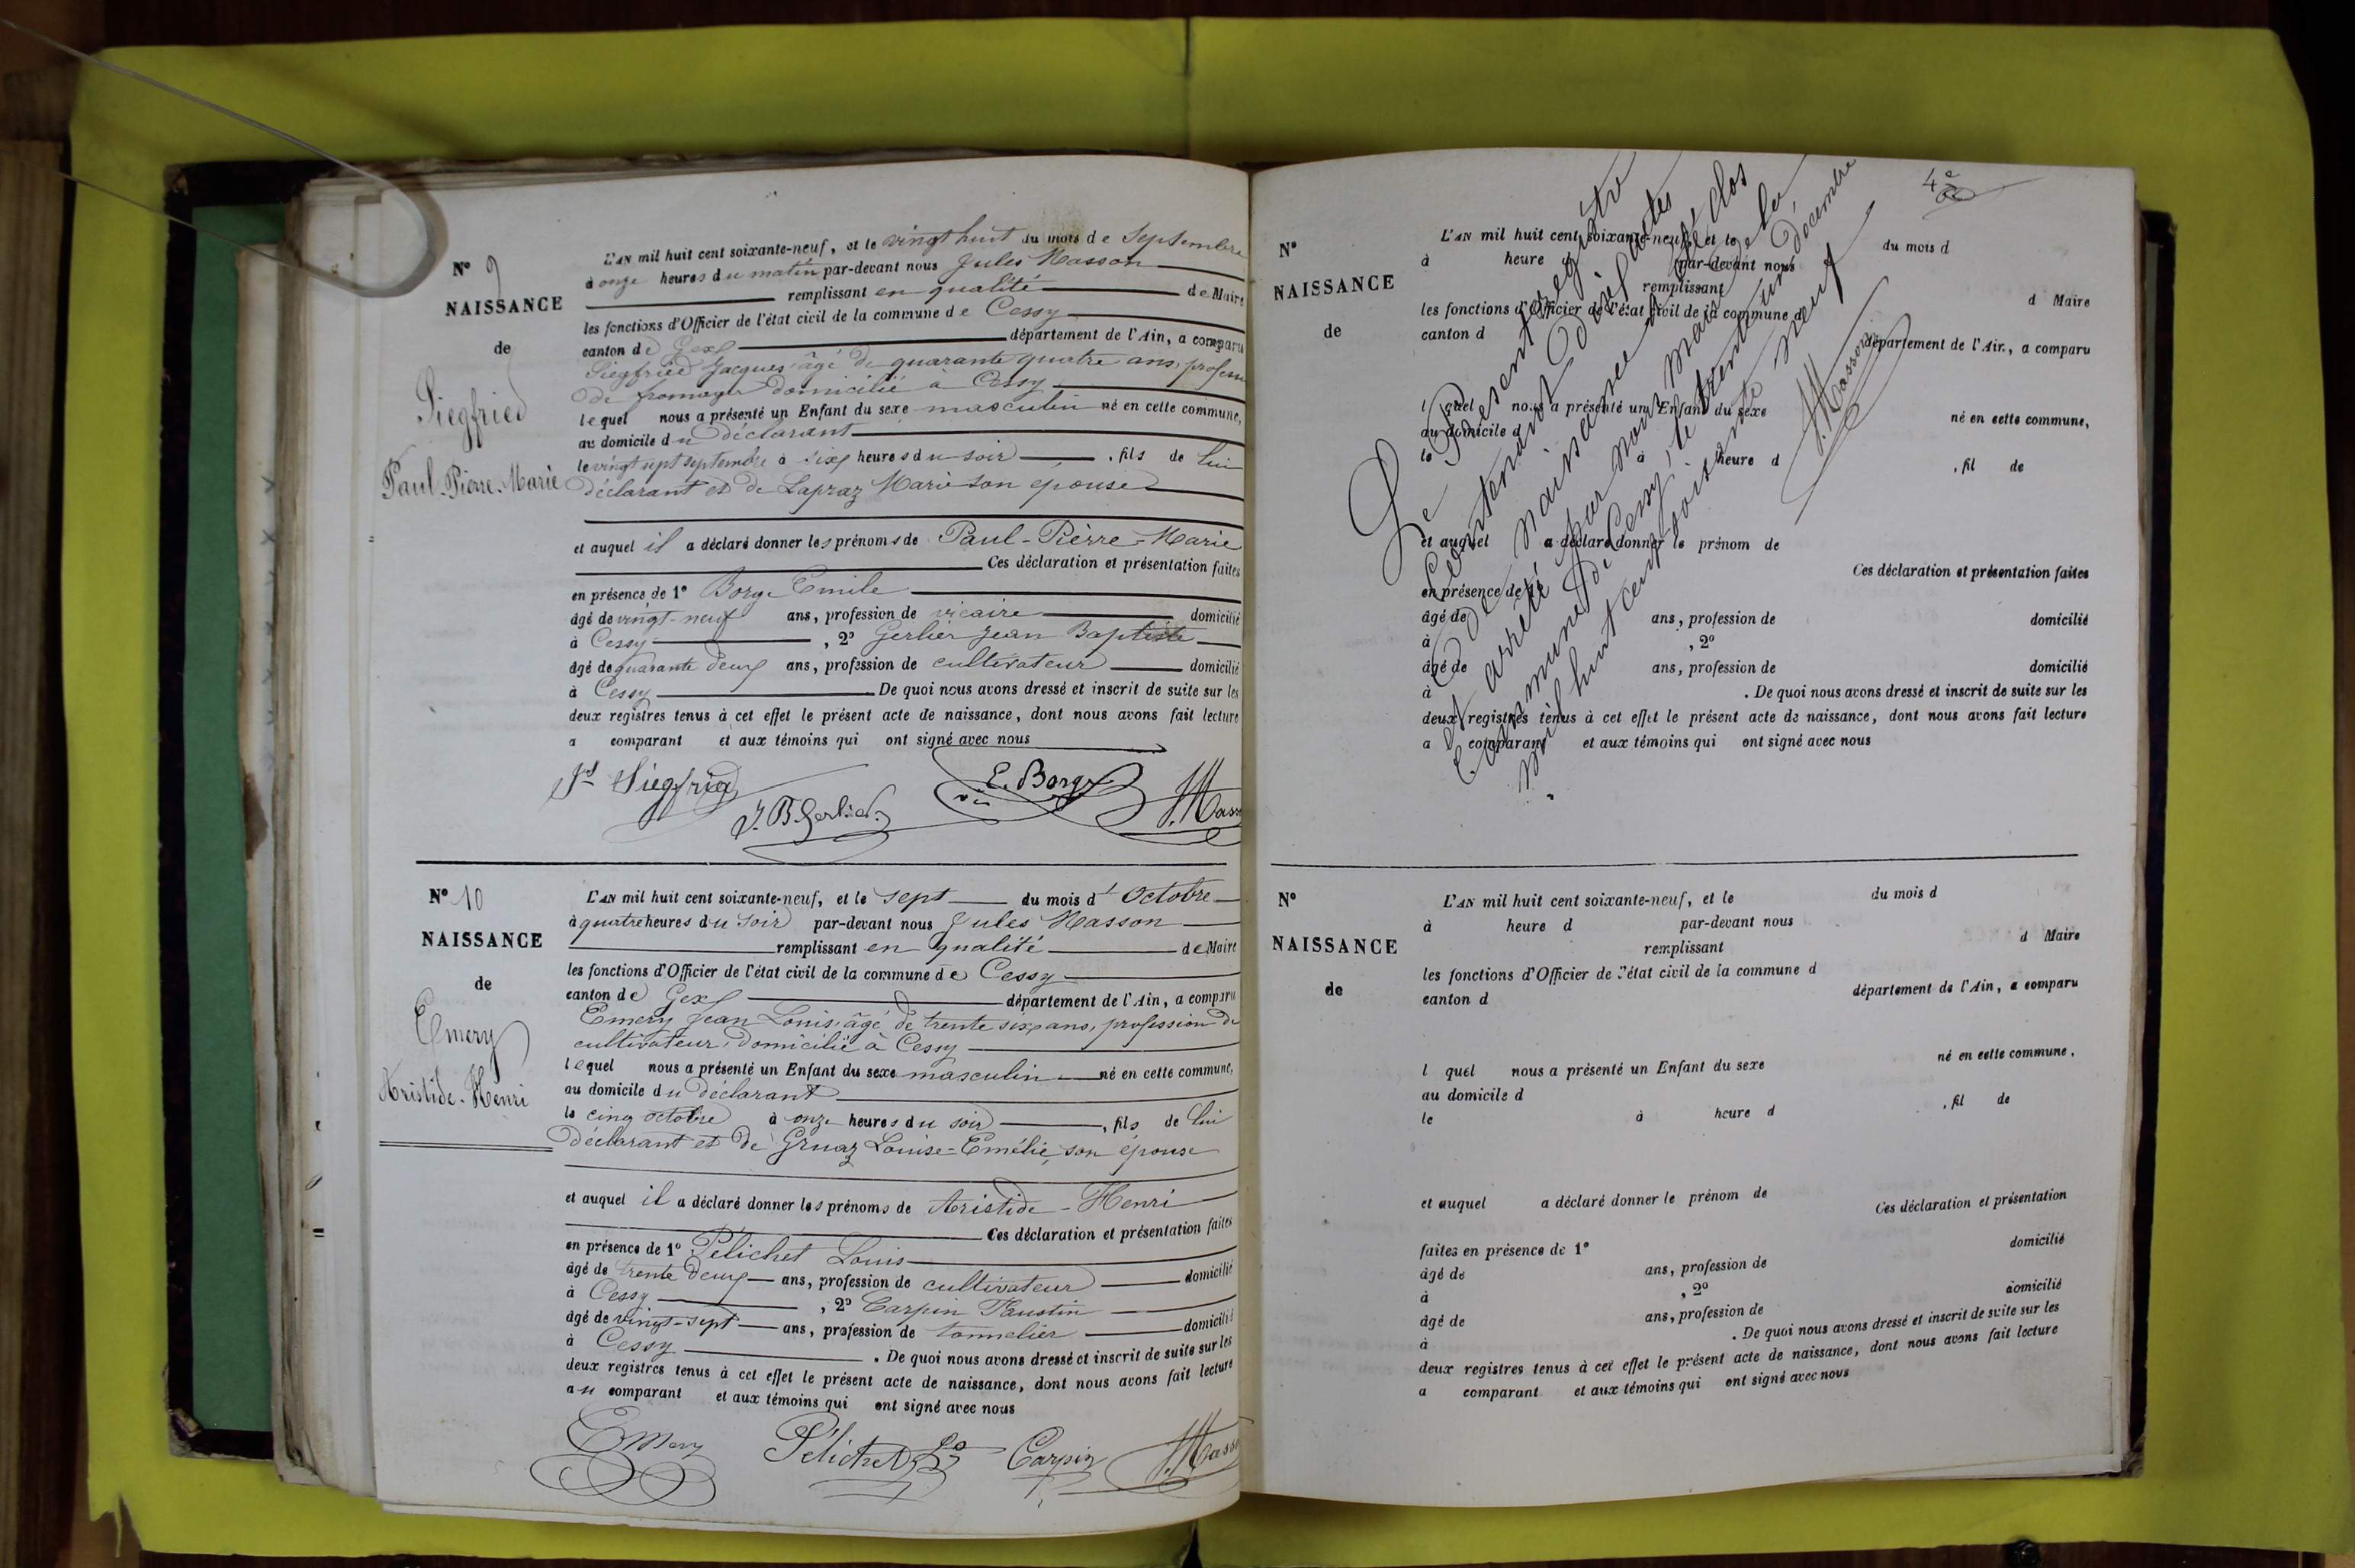 N° 9
NAISSANCE
de
Siegfried
Paul-Pierre-Marie
L'AN mil huit cent soixante-neuf, et le vingt huit du mois de Septembre
à onze heures du matin par-devant nous Jules Masson
remplissant en qualité de Maire
les fonctions d'Officier de l'état civil de la commune de Cessy
canton de Gex département de l'Ain, a comparu
Siegfried Jacques âgé de quarante quatre ans, profession
de fromager domicilié à Cessy
lequel nous a présenté un Enfant du sexe masculin né en cette commune,
au domicile du déclarant
le vingt sept septembre à six heures du soir , fils de lui
déclarant et de Lapraz Marie son épouse
et auquel il a déclaré donner les prénoms de Paul-Pierre-Marie
Ces déclaration et présentation faites
en présence de 1° Borge Emile
âgé de vingt-neuf ans, profession de vicaire domicilié
à Cessy , 2° Gerlier Jean Baptiste
âgé de quarante deux ans, profession de cultivateur domicilié
à Cessy De quoi nous avons dressé et inscrit de suite sur les
deux registres tenus à cet effet le présent acte de naissance, dont nous avons fait lecture
a comparant et aux témoins qui ont signé avec nous
Jq Siegfried
J. B. Gerlier
E. Borge
vic
J. Masson
N° 10
NAISSANCE
de
Emery
Aristide-Henri
L'AN mil huit cent soixante-neuf, et le sept du mois d'Octobre
à quatre heures du soir par-devant nous Jules Masson
remplissant en qualité de Maire
les fonctions d'Officier de l'état civil de la commune de Cessy
canton de Gex département de l'Ain, a comparu
Emery Jean Louis âgé de trente six ans, profession de
cultivateur, domicilié à Cessy
lequel nous a présenté un Enfant du sexe masculin né en cette commune,
au domicile du déclarant
le cinq octobre à onze heures du soir , fils de lui
déclarant et de Gruaz Louise-Emélie, son épouse
et auquel il a déclaré donner les prénoms de Aristide-Henri
Ces déclaration et présentation faites
en présence de 1° Pélichet Louis
âgé de trente deux ans, profession de cultivateur domicilié
à Cessy , 2° Carpin Faustin
âgé de vingt-sept ans, profession de tonnelier domicilié
à Cessy . De quoi nous avons dressé et inscrit de suite sur les
deux registres tenus à cet effet le présent acte de naissance, dont nous avons fait lecture
au comparant et aux témoins qui ont signé avec nous
Emery Pélichet Ls Carpin J. Masson
4e
N°
NAISSANCE
de
L'AN mil huit cent soixante-neuf, et le du mois d
à heure par-devant nous
remplissant d Maire
les fonctions d'Officier de l'état civil de la commune d
canton d département de l'Ain, a comparu
l quel nous a présenté un Enfant du sexe né en cette commune,
au domicile d
le à heure d , fil de
et auquel a déclaré donner le prénom de
Ces déclaration et présentation faites
en présence de 1°
âgé de ans, profession de domicilié
à , 2°
âgé de ans, profession de domicilié
à . De quoi nous avons dressé et inscrit de suite sur les
deux registres tenus à cet effet le présent acte de naissance, dont nous avons fait lecture
a comparant et aux témoins qui ont signé avec nous
Le Présent registre
Contenant dix actes
de naissance a été clos
et arrêté par nous maire de la
Commune de Cessy, le trente un Décembre
mil huit cent soixante neuf
J. Masson
N°
NAISSANCE
de
L'AN mil huit cent soixante-neuf, et le du mois d
à heure d par-devant nous
remplissant d Maire
les fonctions d'Officier de l'état civil de la commune d
canton d département de l'Ain, a comparu
l quel nous a présenté un Enfant du sexe né en cette commune,
au domicile d
le à heure d , fil de
et auquel a déclaré donner le prénom de
Ces déclaration et présentation
faites en présence de 1° domicilié
âgé de ans, profession de
à , 2° domicilié
âgé de ans, profession de
à . De quoi nous avons dressé et inscrit de suite sur les
deux registres tenus à cet effet le présent acte de naissance, dont nous avons fait lecture
a comparant et aux témoins qui ont signé avec nous